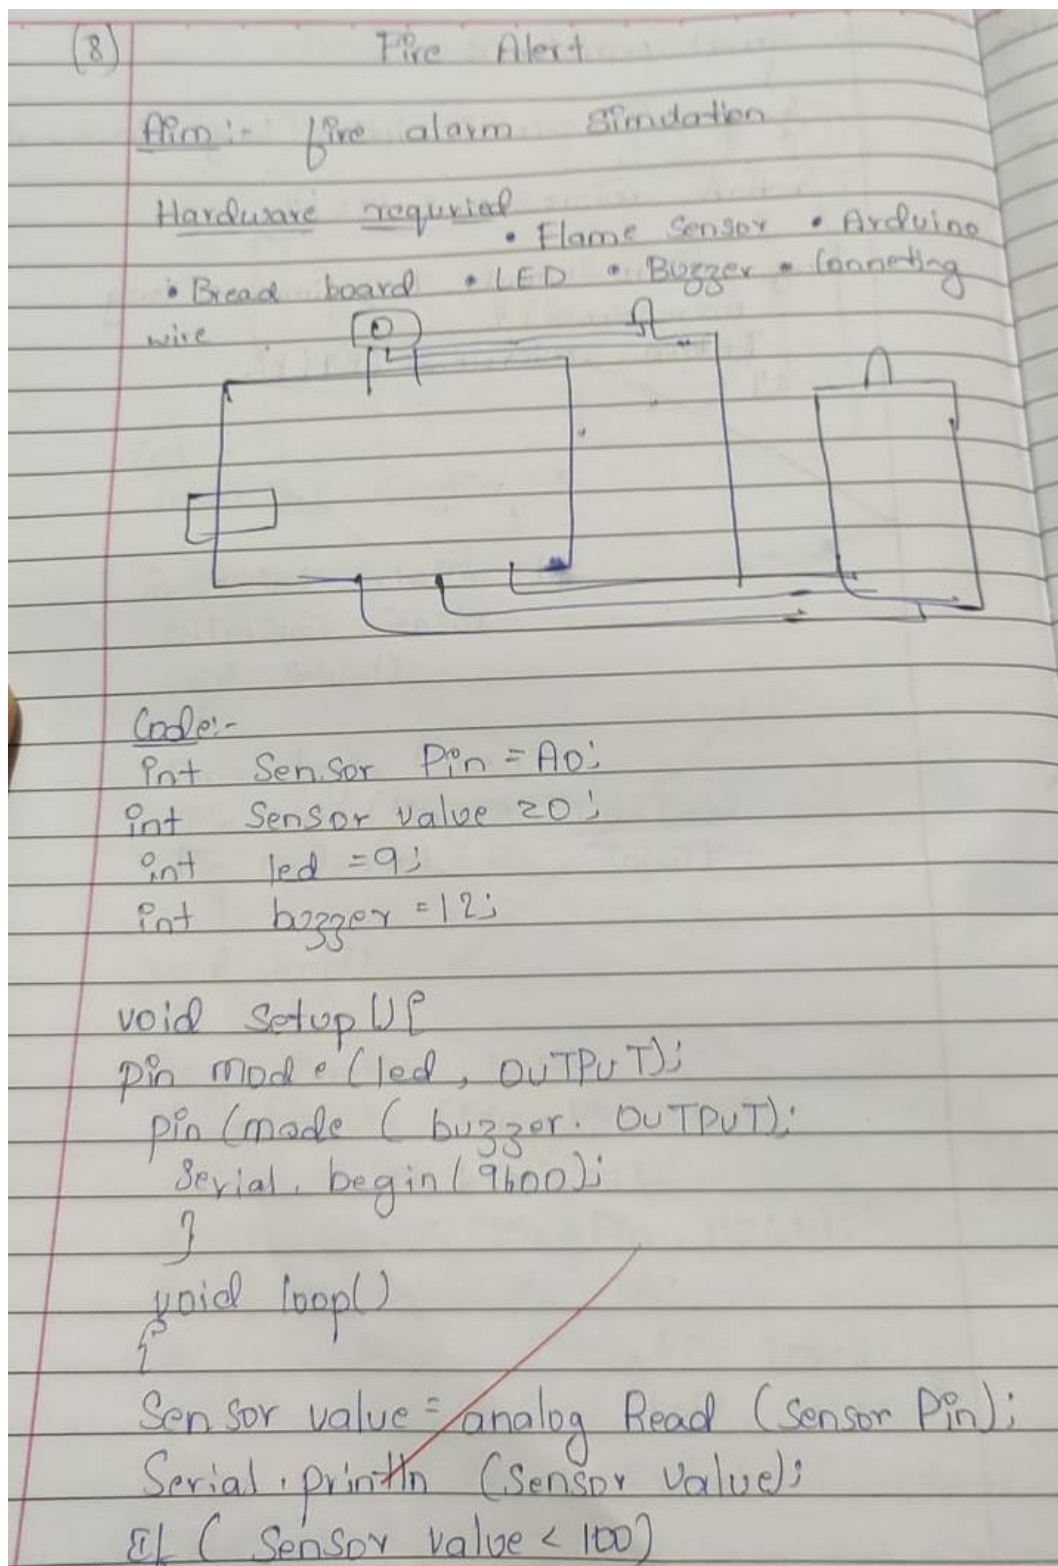 (8) Fire Alert
Aim:- fire alarm Simulation
Hardware requried
• Flame Sensor • Arduino
• Bread board • LED • Buzzer • Conneting
wire
Code:-
int Sensor Pin = A0;
int Sensor value = 0;
int led = 9;
int buzzer = 12;
void Setup () {
pin mode (led, OUTPUT);
pin (mode ( buzzer. OUTPUT);
Serial. begin (9600);
}
void loop()
{
Sensor value = analog Read (Sensor Pin);
Serial. println (Sensor Value);
If ( Sensor value < 100)